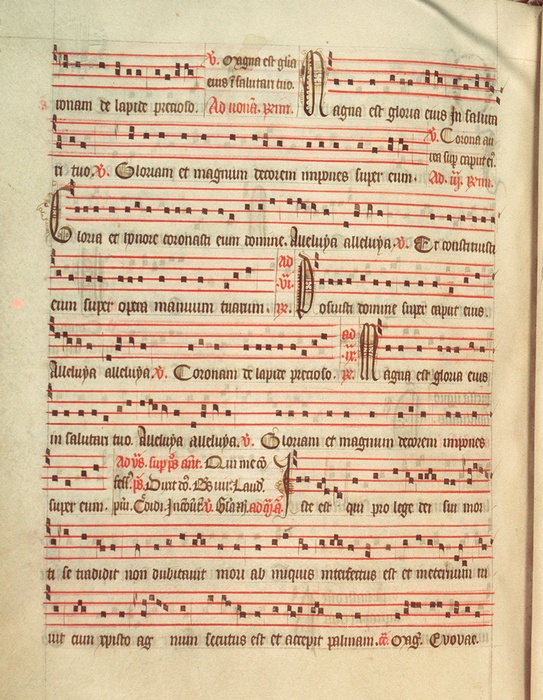 V. Magna est glia
eius ī salutari tuo.
ronam de lapide precioso. Ad nonā. Rm. Magna est gloria eius In saluta
V. Corona au
rea sup caput eꝰ.
ri tuo. V. Gloriam et magnum decorem impones super eum. Ad .iij. Rm.
Gloria et honore coronasti eum domine. Alleluya alleluya. V. Et constituisti
ad
.vi.
eum super opera manuum tuarum. R. Posuisti domine super caput eius.
ad
.ix.
Alleluya alleluya. V. Coronam de lapide precioso. R. Magna est gloria eius
in salutari tuo. Alleluya alleluya. V. Gloriam et magnum decorem impones
Ad vs. sup ps ant. Qui me cō
super eum.
Iste est qui pro lege dei sui mor
ti se tradidit non dubitauit mori ab iniquis interfectus est et meternum ui
uit cum xpisto ag num secutus est et accepit palmam. Euouae.